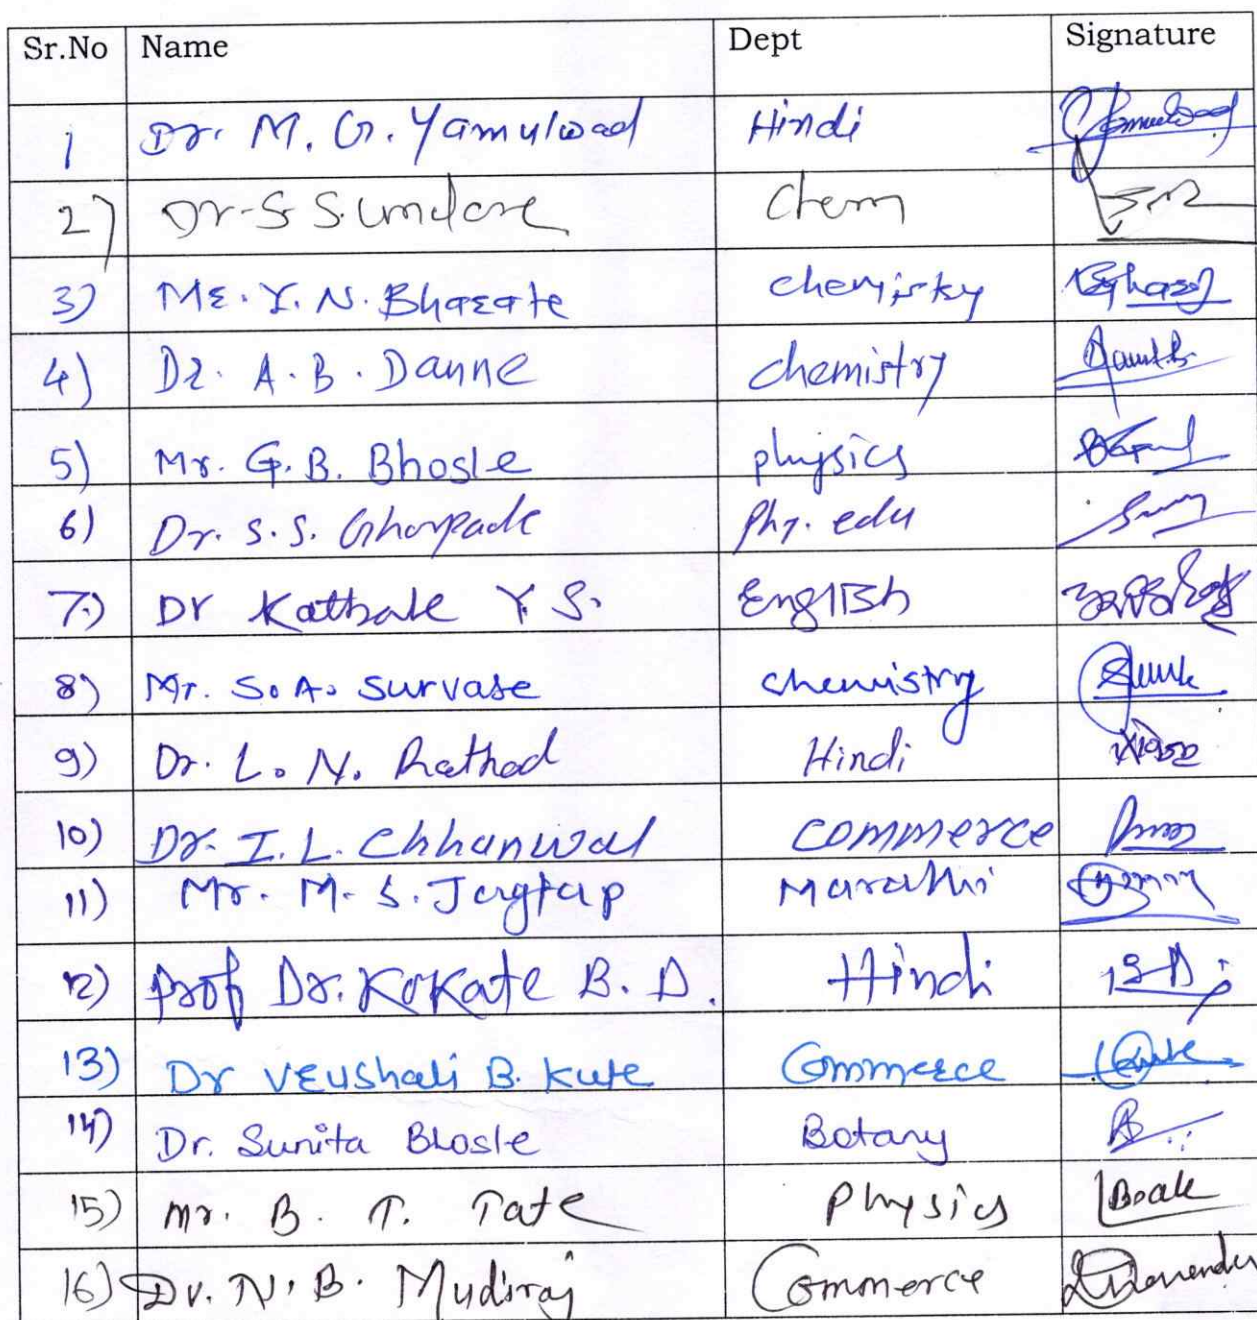 Sr.No Name Dept Signature
1 Dr. M. G. Yamulwad Hindi
2) Dr. S. S. Undare Chem
3) Mr. Y. N. Bharate chemistry
4) Dr. A. B. Danne chemistry
5) Mr. G. B. Bhosle physics
6) Dr. S. S. Ghorpade Phy. edu
7) Dr Kathale Y. S. English
8) Mr. S. A. Survase chemistry
9) Dr. L. N. Rathod Hindi
10) Dr. I. L. Chhanwal commerce
11) Mr. M. S. Jagtap Marathi
12) Prof Dr. Kokate B. D. Hindi
13) Dr B. Kute Commerce
14) Dr. Sunita Bhosle Botany
15) Mr. B. T. Tate Physics
16) Dr. N. B. Mudiraj Commerce